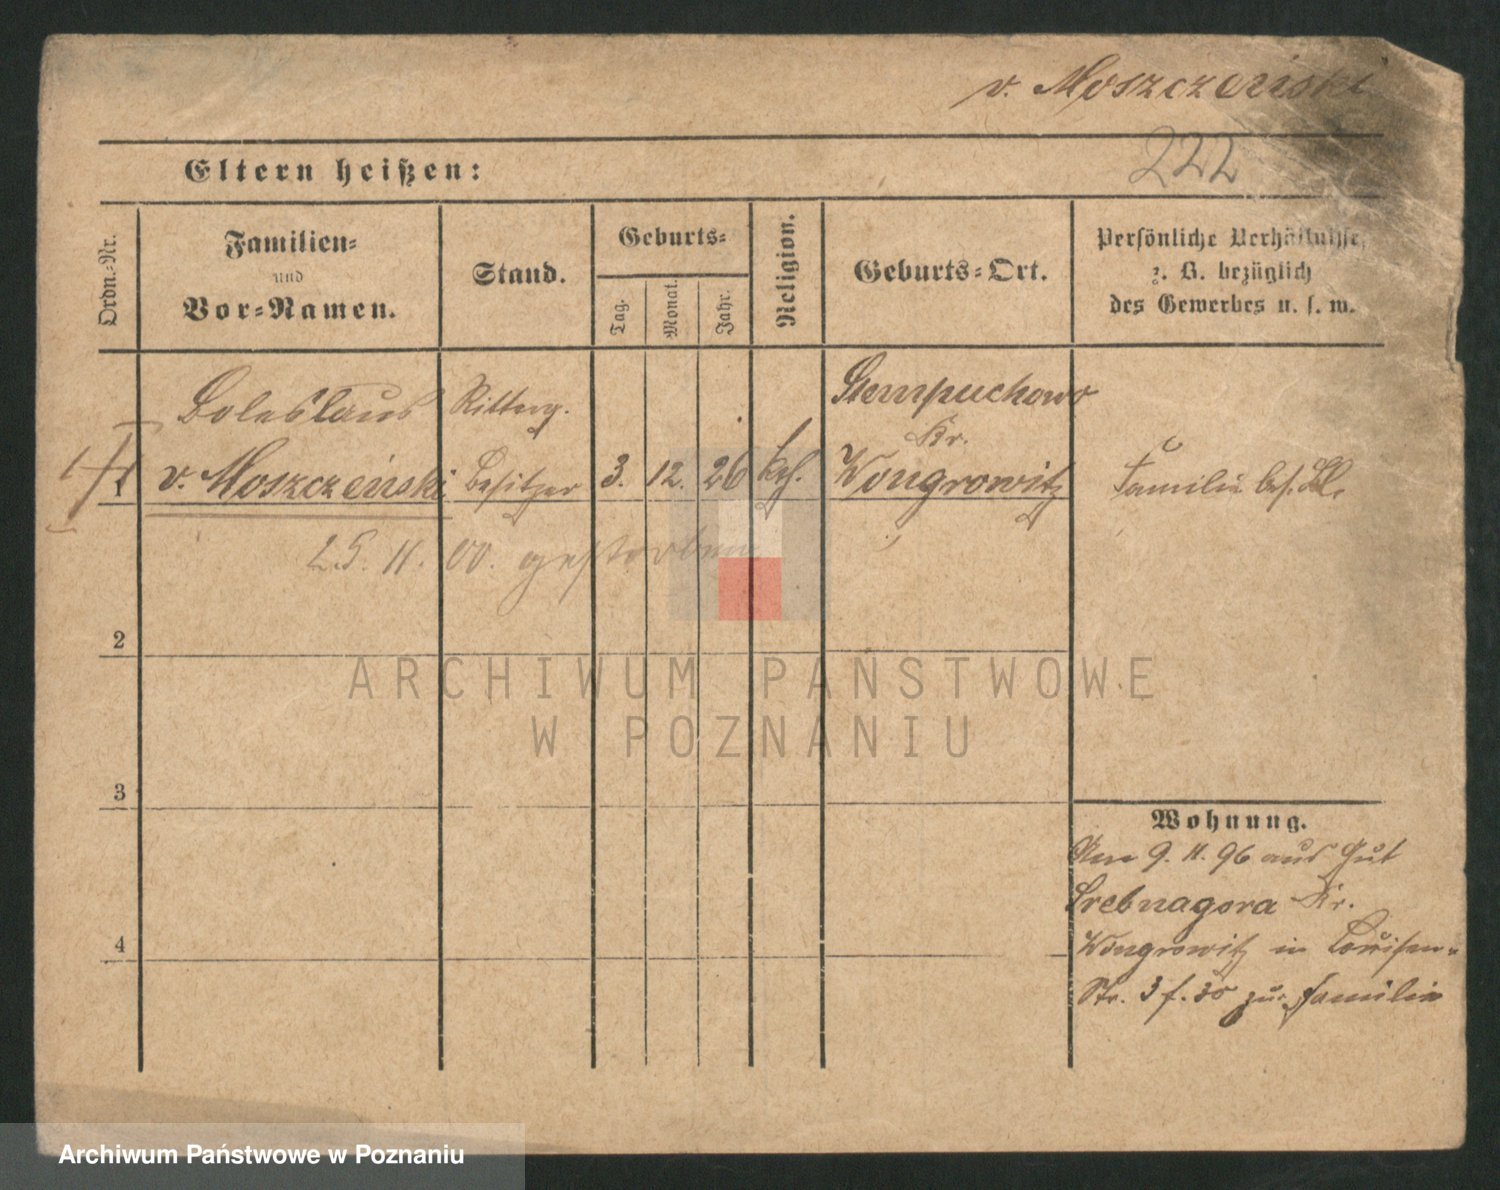 v. Moszczeński
222
Eltern heißen:
Ordn.-Nr.
Familien-
und
Vor-Namen.
Stand.
Geburts-
Tag.
Monat.
Jahr.
Religion.
Geburts-Ort.
Persönliche Verhältnisse,
z. B. bezüglich
des Gewerbes u. s. w.
Boleslaus Ritterg. Stempuchowo
Kr.
1 v. Moszczeński Besitzer 3. 12. 26 kth. Wongrowitz Familie bes. Bl.
25. 11. 00. gestorben
2
3
4
Wohnung.
Am 9. 11. 96 aus Gut
Srebnagora Kr.
Wongrowitz in Louisen-
Str. 3 f. 30 zur Familie
ARCHIWUM PAŃSTWOWE
W POZNANIU
Archiwum Państwowe w Poznaniu